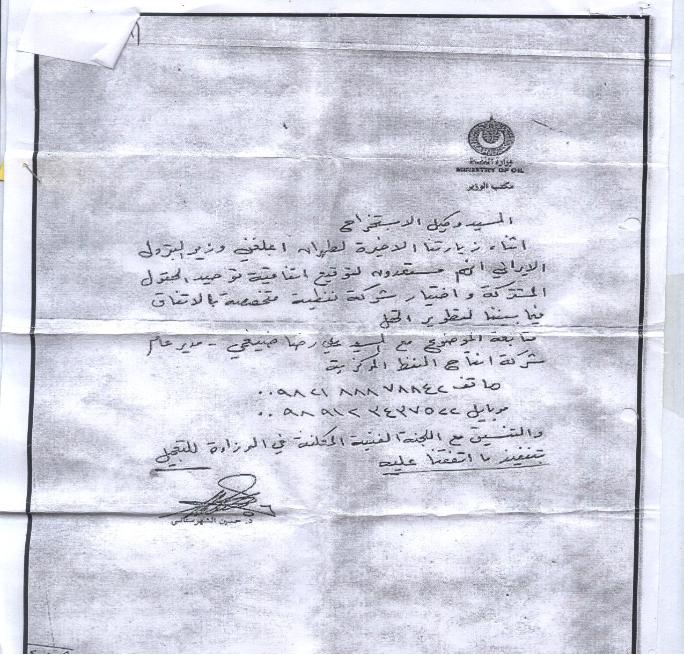 وزارة النفط
MINISTRY OF OIL
مكتب الوزير
السيد وكيل الاستخراج
اثناء زيارتنا الاخيرة لطهران اعلمني وزير البترول
الايراني انهم مستعدون لتوقيع اتفاقية توحيد الحقول
المشتركة و اختيار شركة نفطية متخصصة بالاتفاق
فيما بيننا لتطوير الحقل
متابعة الموضوع مع السيد علي رضا - مدير عام
شركة انتاج النفط المركزية
هاتف ٠٠٩٨٢١ ٨٨٨٧٨٨٤٢
موبايل ٠٠٩٨٩١٢ ٣٤٣٧٥٢٢
والتنسيق مع اللجنة الفنية المكلفة في الوزارة للتعجيل
بتنفيذ ما اتفقنا عليه
د. حسين الشهرستاني